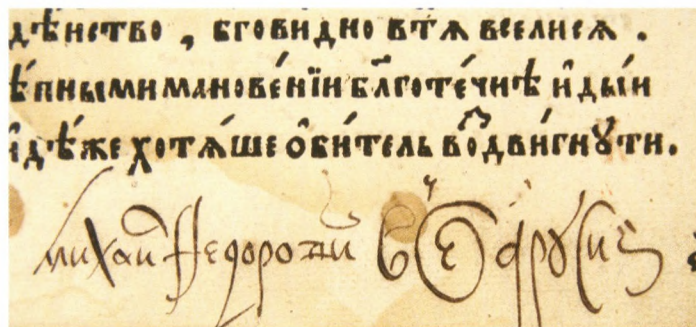 дѣнство , бговидно втѧ вселисѧ .
ѣпнымимановенїи бл҃готечнѣ и҆дыи
идѣже хотѧше ѻбитель воздвигнꙋти.
михаил Ѳедорович